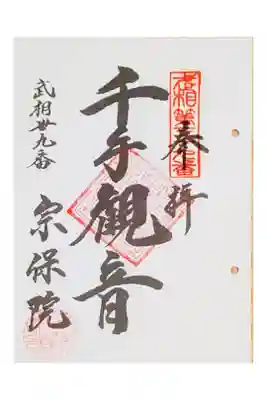 奉拝
千手観音
武相卅九番
宗保院